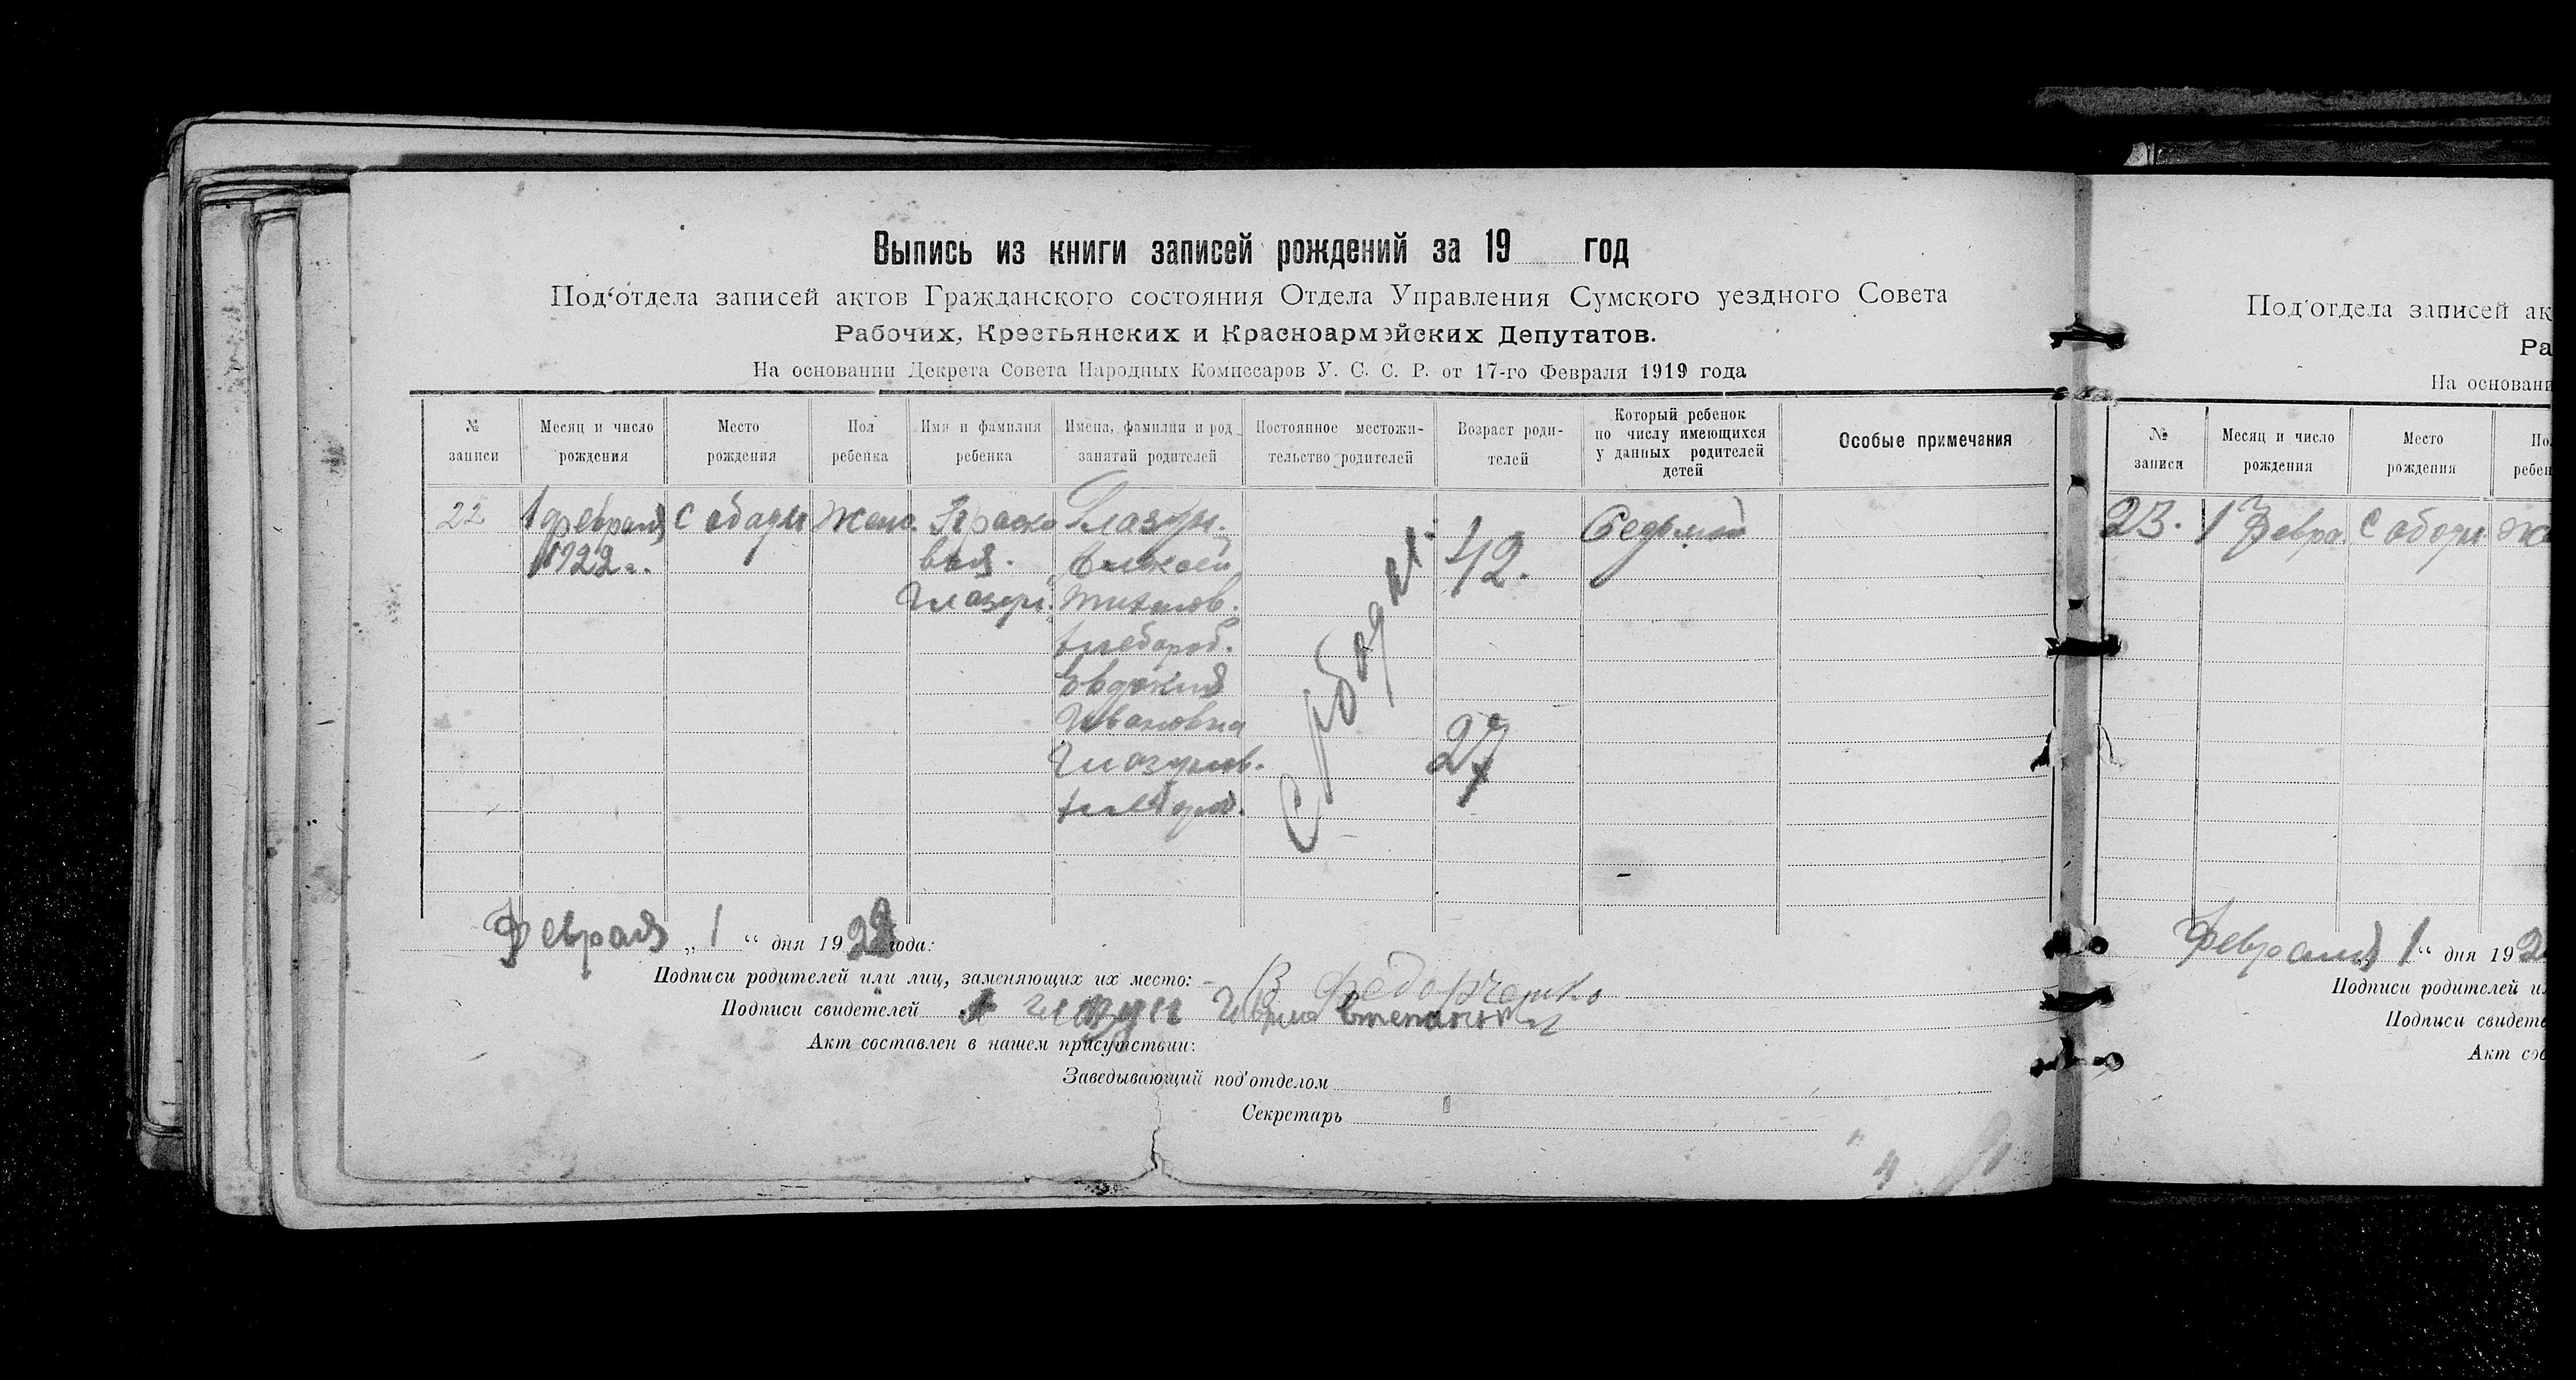 Выпись из книги записей рождений за 19 год
Под‘отдела записей актов Гражданского состояния Отдела Управления Сумского уездного Совета
Рабочих, Крестьянских и Красноармейских Депутатов.
На основании Декрета Совета Народных Комиссаров У. С. С. Р. от 17-го Февраля 1919 года
№ записи
Месяц и число рождения
Место рождения
Пол ребенка
Имя и фамилия ребенка
Имена, фамилии и род занятий родителей
Постоянное местожительство родителей
Возраст родителей
Который ребенок по числу имеющихся у данных родителей детей
Особые примечания
22
1 февраля
1922 г.
С Ободы
Женс.
Праско
вия.
Глазун.
Глазун.
Алексей
Тихонов.
хлебороб.
Евдокия
Ивановна
Глазунов.
хлебороб.
С Ободы
42.
27
Седьмой
Февраля „ 1 “ дня 1922 года:
Подписи родителей или лиц, заменяющих их место:
Подписи свидетелей
Федорченко
Глазун
Акт составлен в нашем присутствии:
Заведывающий под‘отделом
Секретарь
Под‘отдела записей ак
Ра
На основани
№ записи
Месяц и число рождения
Место рождения
По
ребен
23.
1 Февра
С Ободы
Же
Февраля 1 “ дня 192
Подписи родителей и
Подписи свидете
Акт сос